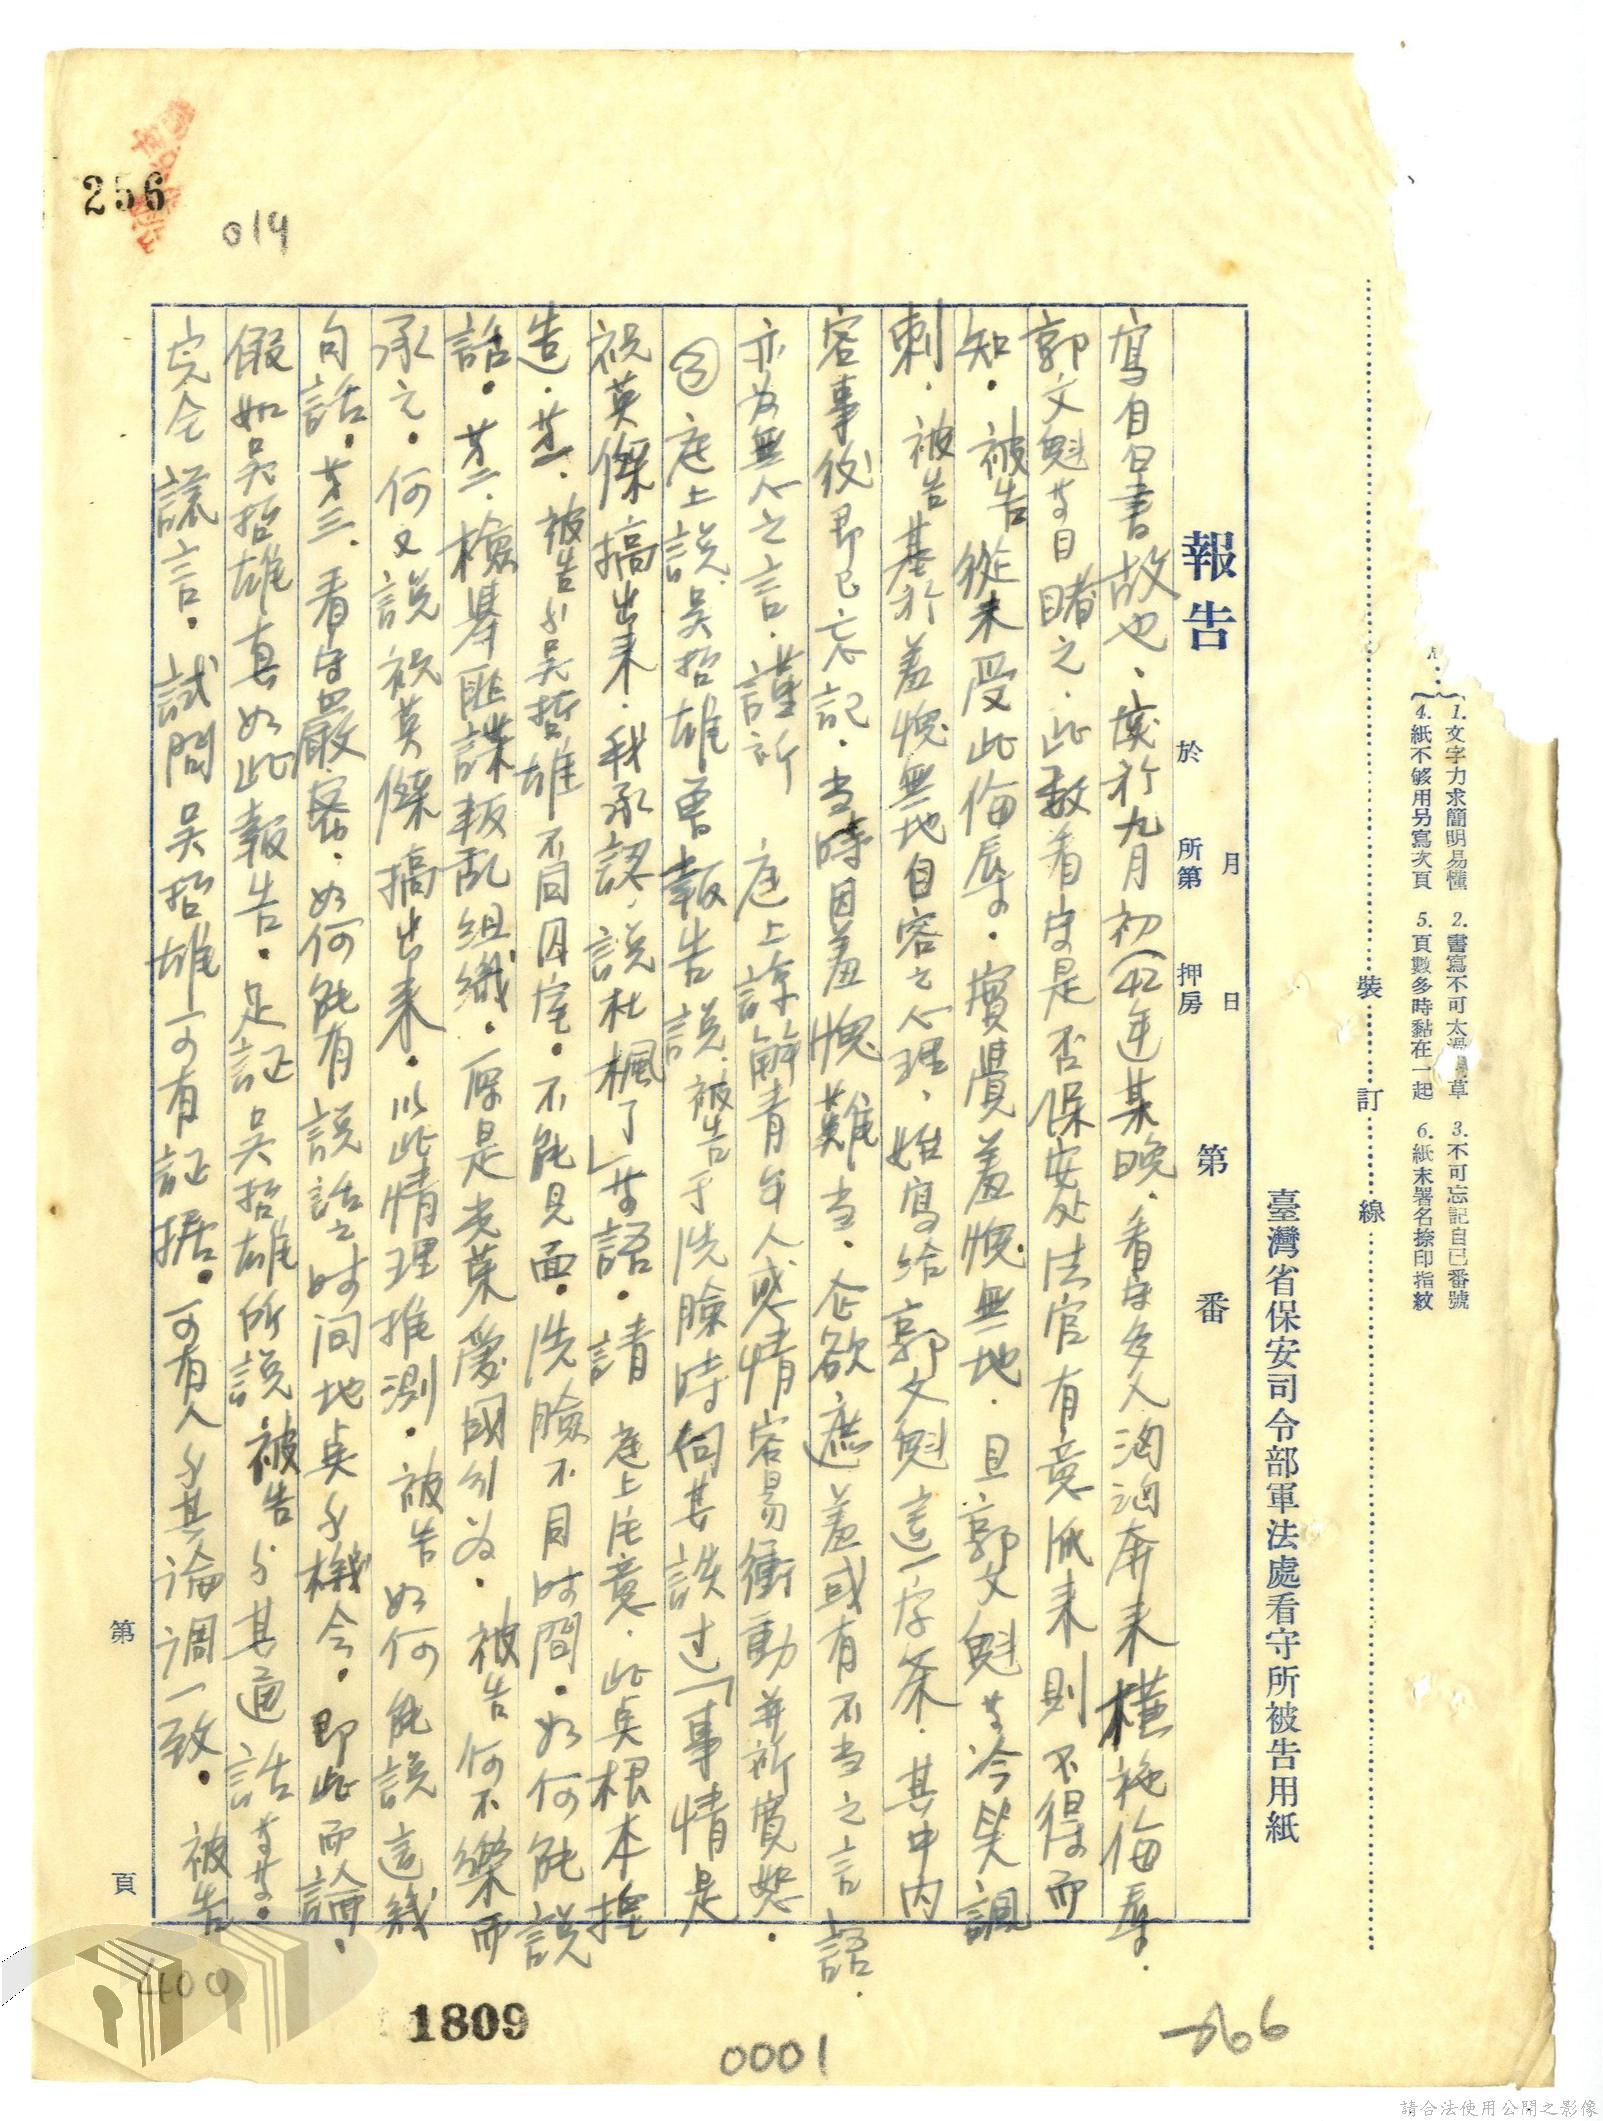 1.文字力求簡明易懂 2.書寫不可太潦草 3.不可忘記自己番號
4.紙不够用另寫次頁 5.頁數多時黏在一起 6.紙末署名捺印指紋
裝 訂 線
臺灣省保安司令部軍法處看守所被告用紙
報告 於 月 日 所第 押房 第 番
寫自白書故也、於九月初(42年某晚、看守多人洶洶奔來橫施侮辱.
郭文魁等目睹之.此数看守是否保安处法官有意派来則不得而
知.被告從未受此侮辱.實覺羞愧無地.且郭文魁等冷笑諷
刺.被告基於羞愧無地自容之心理、始寫給郭文魁這一字条.其中内
容事後即已忘記.当時因羞愧難当.企欲遮羞或有不当之言語.
亦为無心之言.謹祈 庭上諒解青年人感情容易衝動并祈寬恕.
③庭上説吳哲雄曽報告説.被告于洗臉時向其談过「事情是
祝英傑搞出来.我承認.説杜楓了」等語.請 庭上注意.此奌根本捏
造.第一.被告与吳哲雄不同囚室.不能見面.洗臉不同时間.如何能説
話.第二.檢舉匪諜叛乱組織.原是光榮愛國行为.被告何不樂而
承之.何又説祝英傑搞出来.以此情理推測.被告如何能説這幾
句話.第三.看守甚嚴密.如何能有説話之时间地奌与機会.即此而論.
假如吳哲雄真如此報告.足証吳哲雄所説被告与其通話等等.
完全謊言.試問吳哲雄可有証据.可有人与其論調一致.被告
第 頁
256
019
400
1809
0001
請合法使用公開之影像